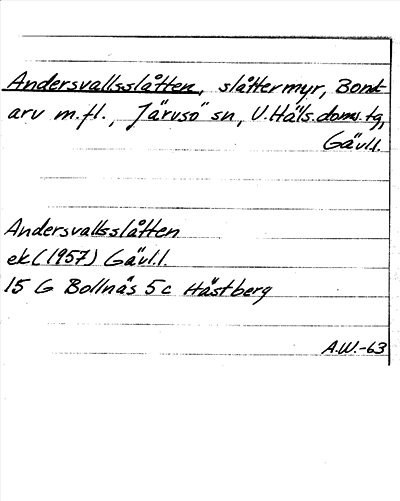 Andersvallsslåtten, slåttermyr, Bond-
arv m.fl., Järvsö sn, V.Häls.doms.tg,
Gävl.l.
Andersvallsslåtten
ek (1957) Gävl.l.
15 G Bollnäs 5c Hästberg
A.W.-63